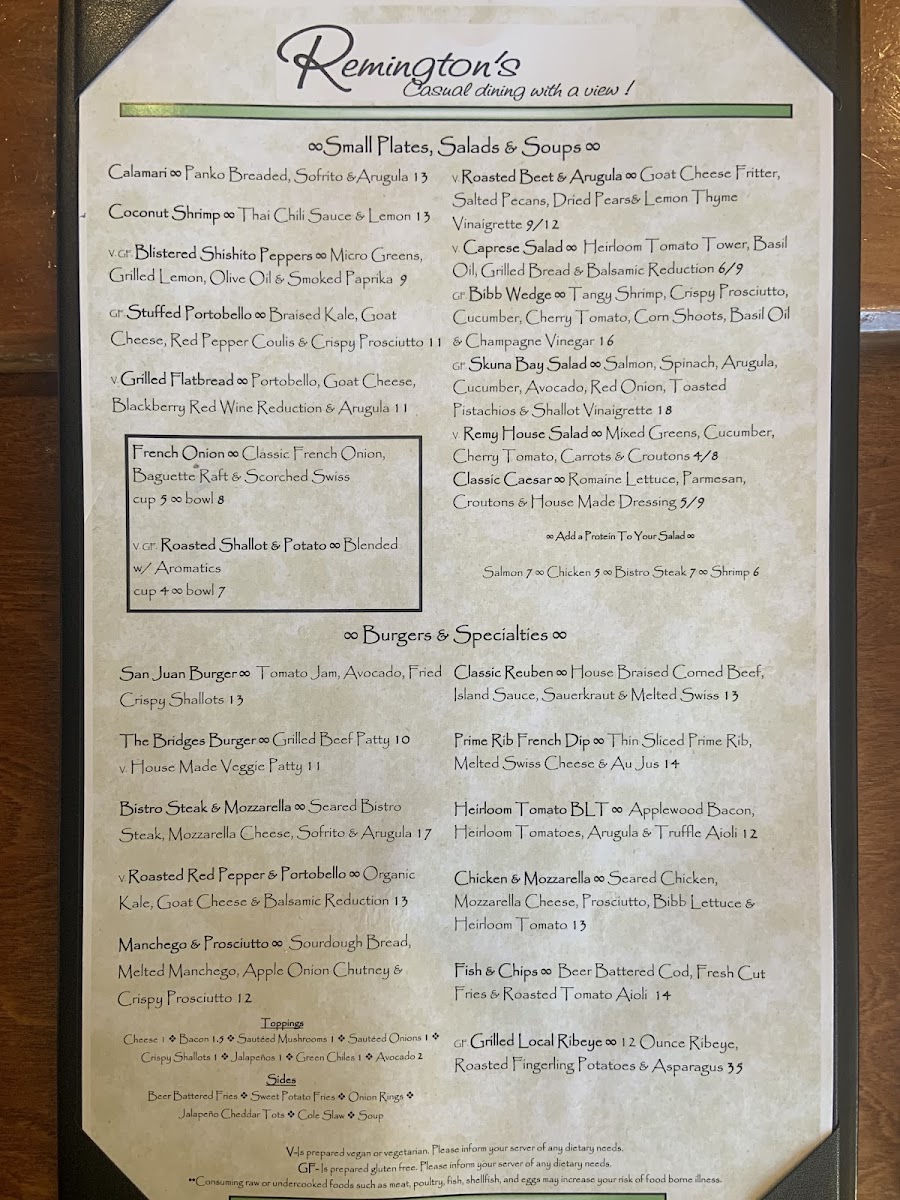 Remington's
Casual dining with a view !
∞Small Plates, Salads & Soups ∞
Calamari ∞ Panko Breaded, Sofrito & Arugula 13
Coconut Shrimp ∞ Thai Chili Sauce & Lemon 13
V. GF. Blistered Shishito Peppers ∞ Micro Greens,
Grilled Lemon, Olive Oil & Smoked Paprika 9
GF. Stuffed Portobello ∞ Braised Kale, Goat
Cheese, Red Pepper Coulis & Crispy Prosciutto 11
V. Grilled Flatbread ∞ Portobello, Goat Cheese,
Blackberry Red Wine Reduction & Arugula 11
French Onion ∞ Classic French Onion,
Baguette Raft & Scorched Swiss
cup 5 ∞ bowl 8
V. GF. Roasted Shallot & Potato ∞ Blended
w/ Aromatics
cup 4 ∞ bowl 7
V. Roasted Beet & Arugula ∞ Goat Cheese Fritter,
Salted Pecans, Dried Pears& Lemon Thyme
Vinaigrette 9/12
V. Caprese Salad ∞ Heirloom Tomato Tower, Basil
Oil, Grilled Bread & Balsamic Reduction 6/9
GF. Bibb Wedge ∞ Tangy Shrimp, Crispy Prosciutto,
Cucumber, Cherry Tomato, Corn Shoots, Basil Oil
& Champagne Vinegar 16
GF. Skuna Bay Salad ∞ Salmon, Spinach, Arugula,
Cucumber, Avocado, Red Onion, Toasted
Pistachios & Shallot Vinaigrette 18
V. Remy House Salad ∞ Mixed Greens, Cucumber,
Cherry Tomato, Carrots & Croutons 4/8
Classic Caesar ∞ Romaine Lettuce, Parmesan,
Croutons & House Made Dressing 5/9
∞ Add a Protein To Your Salad ∞
Salmon 7 ∞ Chicken 5 ∞ Bistro Steak 7 ∞ Shrimp 6
∞ Burgers & Specialties ∞
San Juan Burger ∞ Tomato Jam, Avocado, Fried
Crispy Shallots 13
The Bridges Burger ∞ Grilled Beef Patty 10
V. House Made Veggie Patty 11
Bistro Steak & Mozzarella ∞ Seared Bistro
Steak, Mozzarella Cheese, Sofrito & Arugula 17
V. Roasted Red Pepper & Portobello ∞ Organic
Kale, Goat Cheese & Balsamic Reduction 13
Manchego & Prosciutto ∞ Sourdough Bread,
Melted Manchego, Apple Onion Chutney &
Crispy Prosciutto 12
Toppings
Cheese 1 ❖ Bacon 1.5 ❖ Sautéed Mushrooms 1 ❖ Sautéed Onions 1 ❖
Crispy Shallots 1 ❖ Jalapeños 1 ❖ Green Chiles 1 ❖ Avocado 2
Sides
Beer Battered Fries ❖ Sweet Potato Fries ❖ Onion Rings ❖
Jalapeño Cheddar Tots ❖ Cole Slaw ❖ Soup
Classic Reuben ∞ House Braised Corned Beef,
Island Sauce, Sauerkraut & Melted Swiss 13
Prime Rib French Dip ∞ Thin Sliced Prime Rib,
Melted Swiss Cheese & Au Jus 14
Heirloom Tomato BLT ∞ Applewood Bacon,
Heirloom Tomatoes, Arugula & Truffle Aioli 12
Chicken & Mozzarella ∞ Seared Chicken,
Mozzarella Cheese, Prosciutto, Bibb Lettuce &
Heirloom Tomato 13
Fish & Chips ∞ Beer Battered Cod, Fresh Cut
Fries & Roasted Tomato Aioli 14
GF. Grilled Local Ribeye ∞ 12 Ounce Ribeye,
Roasted Fingerling Potatoes & Asparagus 35
V-Is prepared vegan or vegetarian. Please inform your server of any dietary needs.
GF- Is prepared gluten free. Please inform your server of any dietary needs.
**Consuming raw or undercooked foods such as meat, poultry, fish, shellfish, and eggs may increase your risk of food borne illness.